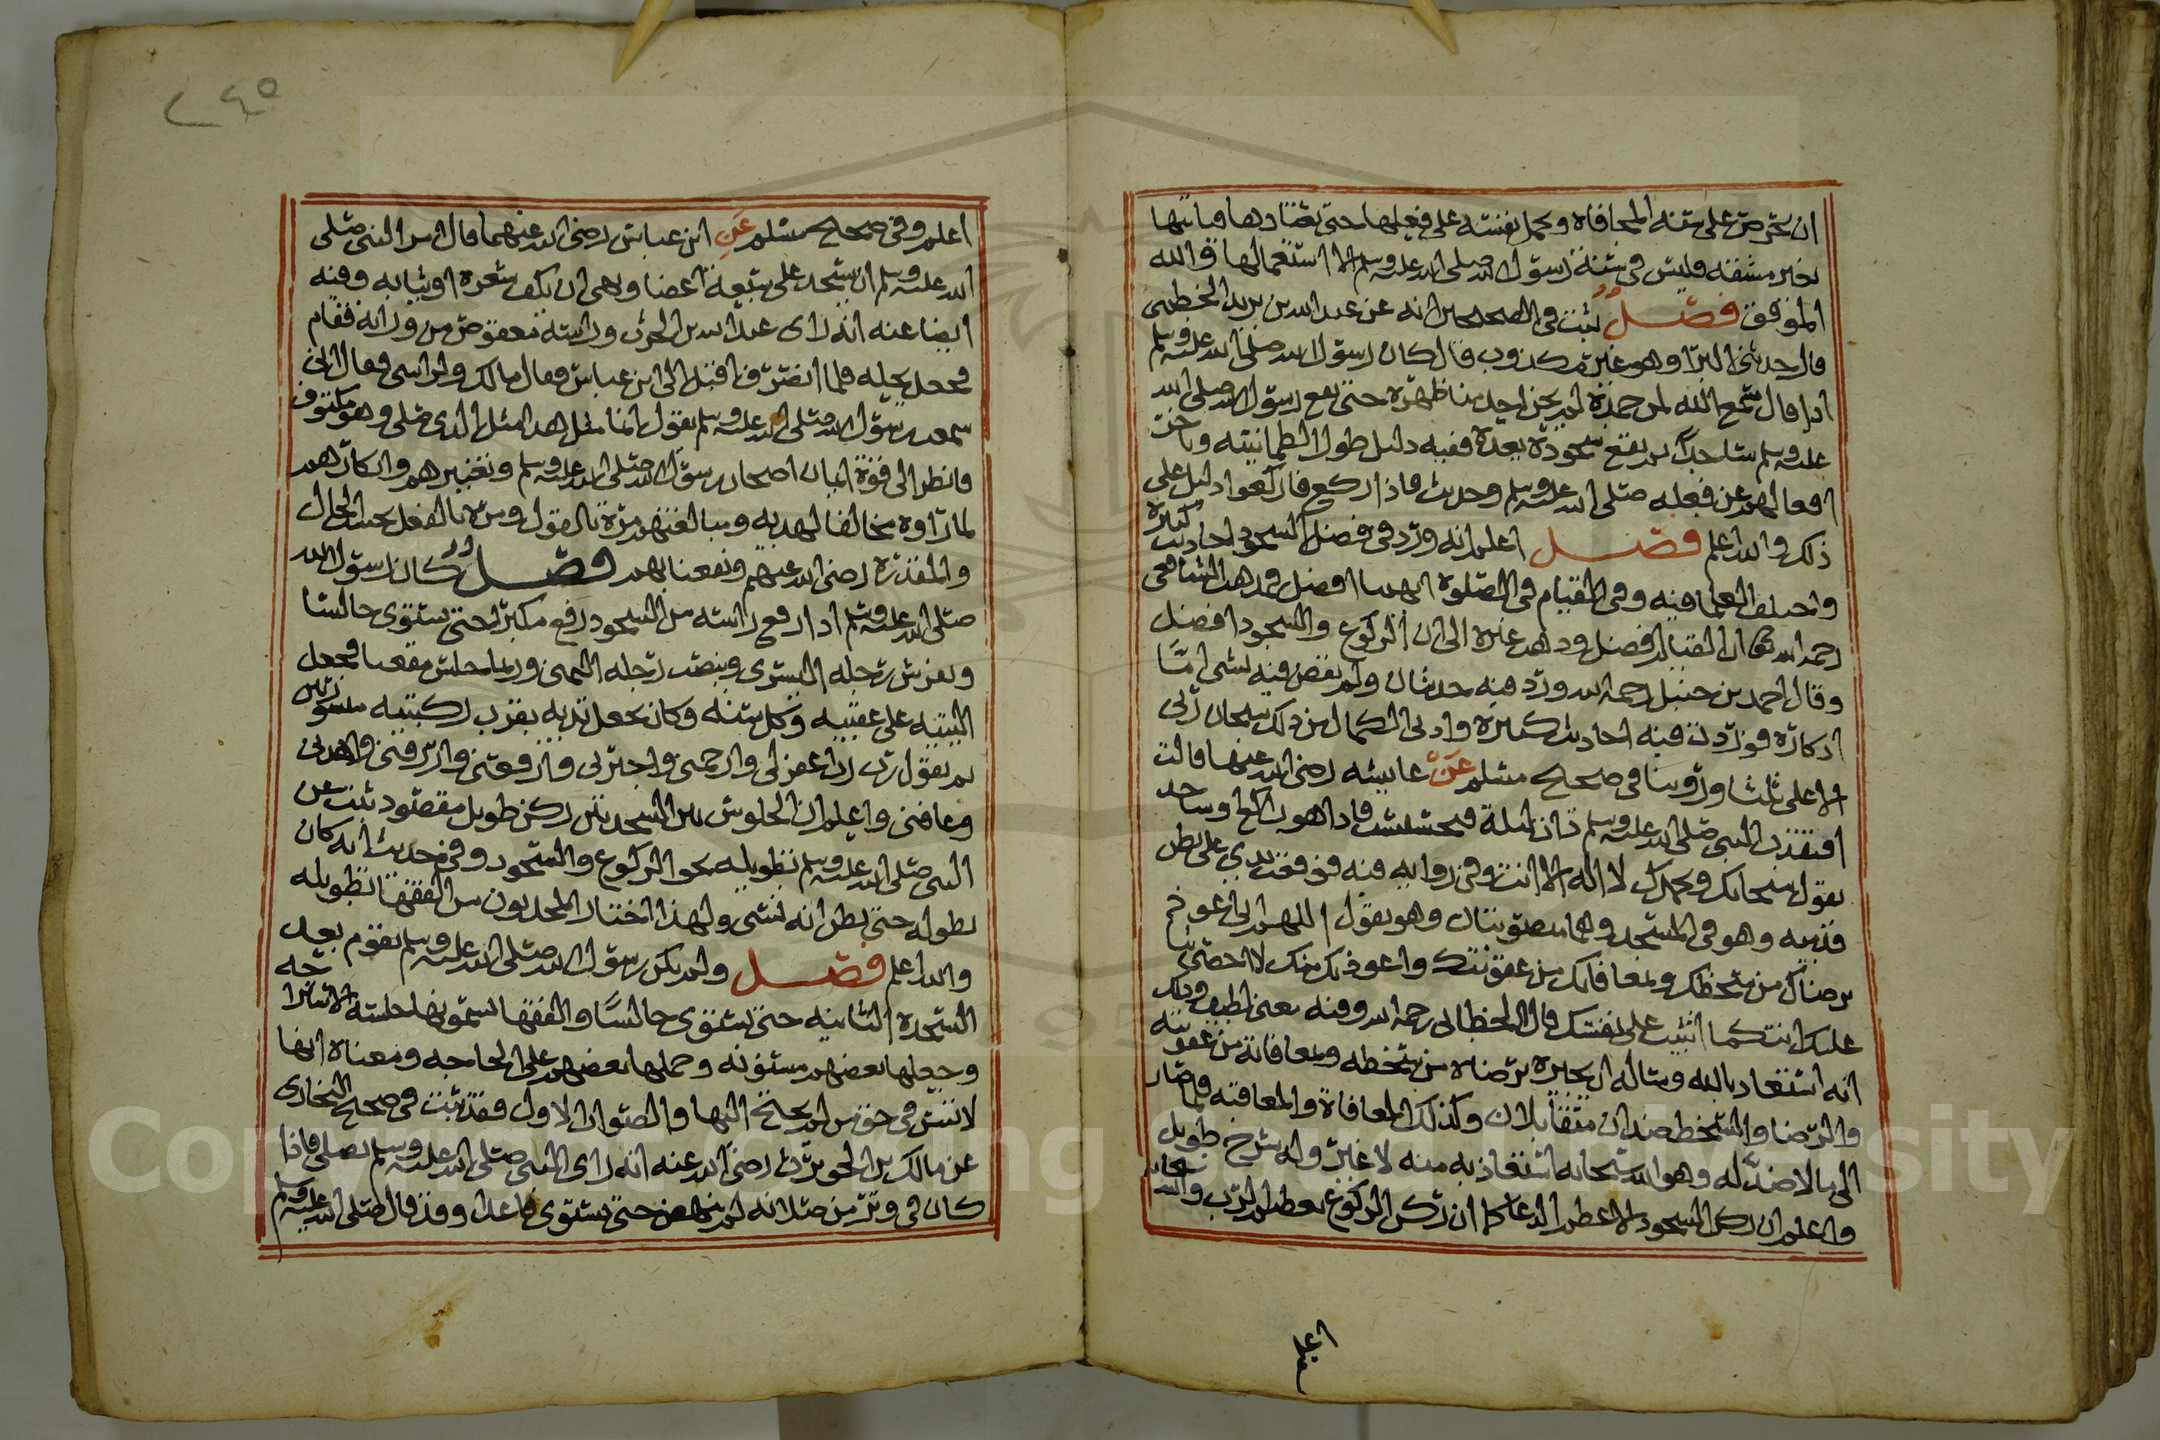 ان يحرص على سنه المجافاه ويحمل نفسه على فعلها حتى يعتادها فياتيها
بغير مشقه فليس في سنة رسول الله صلى الله عليه وسلم الا استعمالها والله
الموفق فصل ثبت في الصحيحين انه عن عبد الله بن يزيد الخطمي
قال حدثني البرا وهو غير كذوب قال كان رسول الله صلى الله عليه وسلم
اذا قال سمع الله لمن حمده لم يحن احد منا ظهره حتى يقع رسول الله صلى الله
عليه وسلم ساجدا ثم يقع سجوده بعده ففيه دليل طول الطمانينه وتاخر
افعالهم عن فعله صلى الله عليه وسلم وحديث فاذا ركع فاركعوا دليل على
ذلك والله اعلم فصل اعلم انه ورد في فضل السجود احاديث كثيره
واختلف العلما فيه وفي القيام في الصلوة ايهما افضل فمذهب الشافعي
رحمه الله تعالى ان القيام افضل وذهب غيره الى ان الركوع والسجود افضل
وقال احمد بن حنبل رحمه الله ورد فيه حديثان ولم يقض فيه بشي امّا
اذكاره فوردت فيه احاديث كثيره وادنى الكمال من ذلك سبحان ربي
الاعلى ثلثا وروينا في صحيح مسلم عن عايشه رضي الله عنها قالت
افتقدت النبي صلى الله عليه وسلم ذات ليلة فتحسست فاذا هو راكع او ساجد
يقول سبحانك وبحمدك لا اله الا انت وفي روايه فيه فوقعت يدي على بطن
قدميه وهو في المسجد وهما منصوبتان وهو يقول اللهم اني اعوذ
برضاك من سخطك وبمعافاتك من عقوبتك واعوذ بك منك لا احصي ثنا
عليك انت كما اثنيت على نفسك قال الخطابي رحمه الله وفيه معنى لطيف وذلك
انه استعاذ بالله وساله ان يجيره برضاه من سخطه وبمعافاته من عقوبته
والرضا والسخط ضدان متقابلان وكذلك المعافاة والمعاقبه فلما صار
الى ما لا ضد له وهو الله سبحانه استعاذ به منه لا غير وله شرح طويل
واعلم ان ركن السجود الاعظم الدعا كما ان ركن الركوع تعظيم الرب والله سبحانه
اعلم
٢٤٥
اعلم وفي صحيح مسلم عن ابن عباس رضي الله عنهما قال امر النبي صلى
الله عليه وسلم ان يسجد على سبعة اعضا ونهى ان يكف شعره او ثيابه وفيه
ايضا عنه انه راى عبد الله بن الحرث وراسه معقوص من ورائه فقام
فجعل يحله فلما انصرف اقبل الى ابن عباس فقال مالك وراسي فقال اني
سمعت رسول الله صلى الله عليه وسلم يقول انما مثل هذا مثل الذي صلى وهو مكتوف
فانظر الى قوة ايمان اصحاب رسول الله صلى الله عليه وسلم وتغييرهم وانكارهم
لما راوه مخالفا لهديه ومبالغتهم مرة بالقول ومرة بالفعل بحسب الحال
والمقدره رضي الله عنهم ونفعنا بهم فصل كان رسول الله
صلى الله عليه وسلم اذا رفع راسه من السجود رفع مكبرا حتى يستوي جالسا
ويفرش رجله اليسرى وينصب رجله اليمنى وربما جلس مقعيا فجعل
اليتيه على عقبيه وكل سنه وكان يجعل يديه بقرب ركبتيه منشورتين
ثم يقول رب اغفر لي وارحمني واجبرني وارفعني وارزقني واهدني
وعافني واعلم ان الجلوس بين السجدتين ركن طويل مقصود ثبت عن
النبي صلى الله عليه وسلم تطويله نحو الركوع والسجود وفي حديث انه كان
يطوله حتى يظن انه نسي ولهذا اختار المحدثون من الفقها تطويله
والله اعلم فصل ولم يكن رسول الله صلى الله عليه وسلم يقوم بعد
السجده الثانيه حتى يستوي جالسا والفقها يسمونها جلسة الاستراحه
وجعلها بعضهم مسنونه وحملها بعضهم على الحاجه ومعناه انها
لا تسن في حق من لم يحتج اليها والصواب الاول فقد ثبت في صحيح البخاري
عن مالك بن الحويرث رضي الله عنه انه راى النبي صلى الله عليه وسلم يصلي فاذا
كان في وتر من صلاته لم ينهض حتى يستوي قاعدا وقد قال صلى الله عليه وسلم